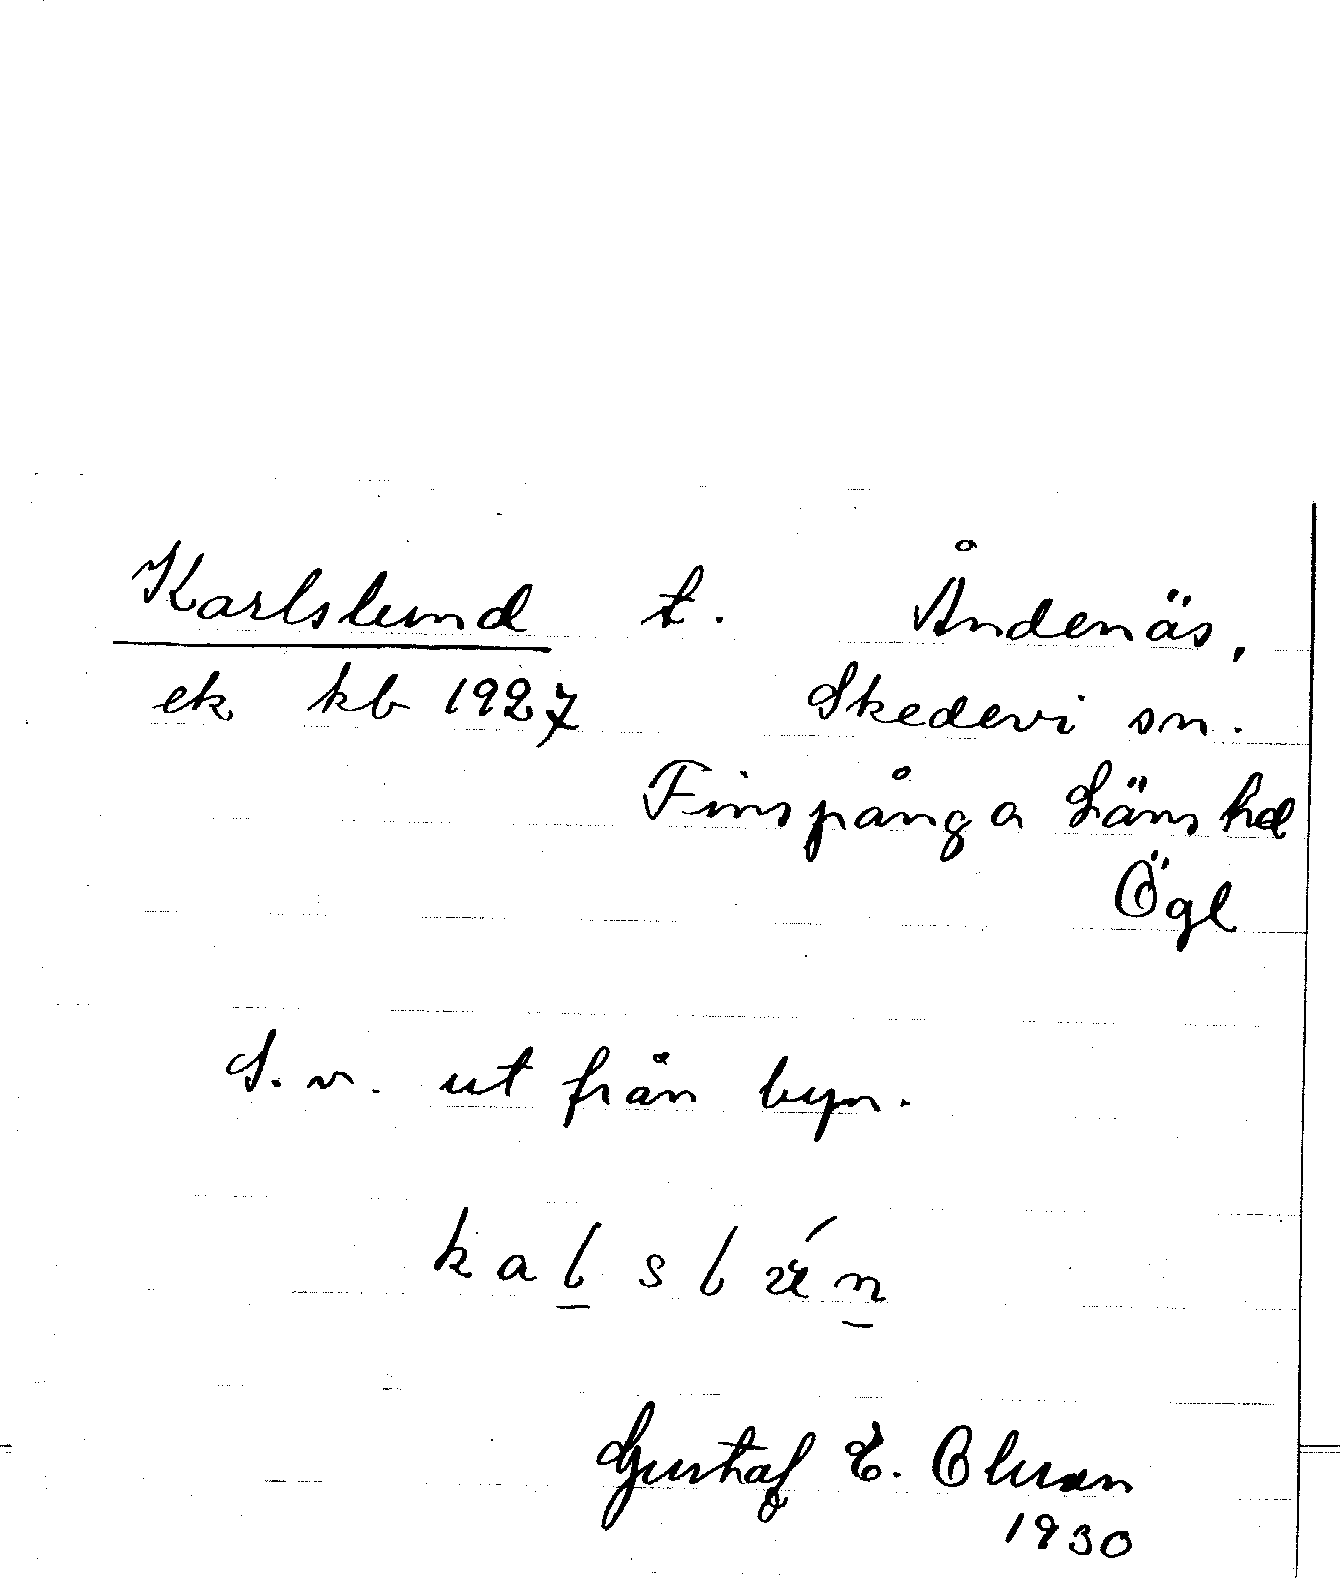 Karlslund t. Åndenäs,
ek kb 1927 Skedevi sn.
Finspånga Läns hd
Ögl
S.v. ut från byn.
Gustaf E. Olsson
1930